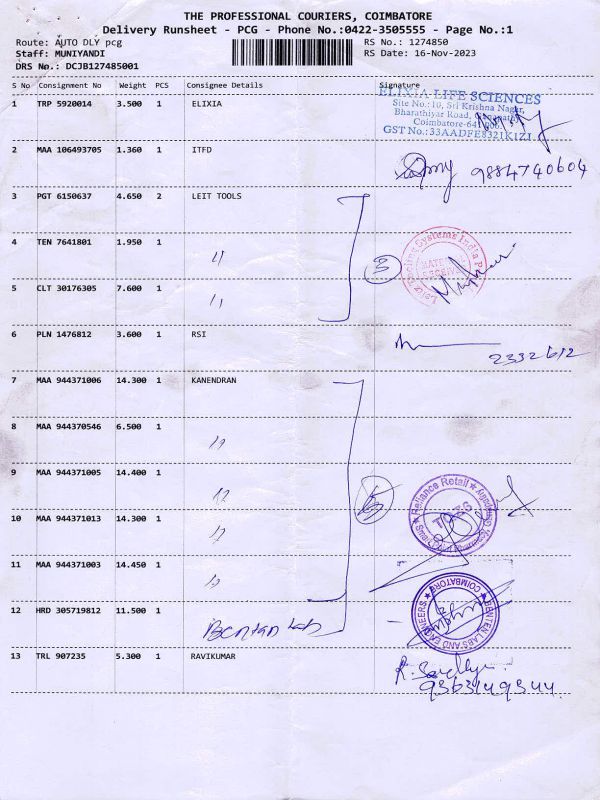 THE PROFESSIONAL COURIERS, COIMBATORE
Delivery Runsheet - PCG - Phone No.:0422-3505555 - Page No.:1
Route: AUTO DLY pcg RS No.: 1274850
Staff: MUNIYANDI RS Date: 16-Nov-2023
DRS No.: DCJB127485001
S No Consignment No Weight PCS Consignee Details Signature
1 TRP 5920014 3.500 1 ELIXIA
ELIXIA LIFE SCIENCES
Site No.:10, Sri Krishna Nagar,
Bharathiyar Road,
Coimbatore-641
GST No.:33AADFE8321K1Z1
2 MAA 106493705 1.360 1 ITFD
9884740604
3 PGT 6150637 4.650 2 LEIT TOOLS
4 TEN 7641801 1.950 1 "
3
5 CLT 30176305 7.600 1 "
6 PLN 1476812 3.600 1 RSI
2332612
7 MAA 944371006 14.300 1 KANENDRAN
8 MAA 944370546 6.500 1 "
9 MAA 944371005 14.400 1 "
5
Reliance Retail
10 MAA 944371013 14.300 1 "
11 MAA 944371003 14.450 1 "
12 HRD 305719812 11.500 1 Bentan Lab
BENTEN LABS AND ENGINEERS
COIMBATORE
13 TRL 907235 5.300 1 RAVIKUMAR
9363149344